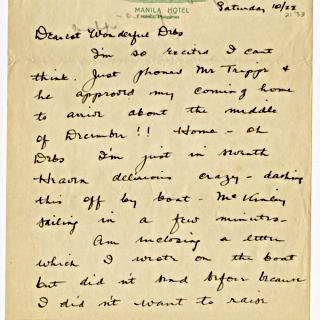 MANILA HOTEL
Saturday 10/22
Dearest Wonderful Debs
I'm so excited I cant
think. Just phoned Mr Trippe &
he approved my coming home
to arrive about the middle
of December !! Home – oh
Debs I'm just in seventh
Heaven delirious crazy – dashing
this off by boat – McKinley
sailing in a few minutes –
Am inclosing a letter
which I wrote on the boat
but did n't send before because
I did n't want to raise